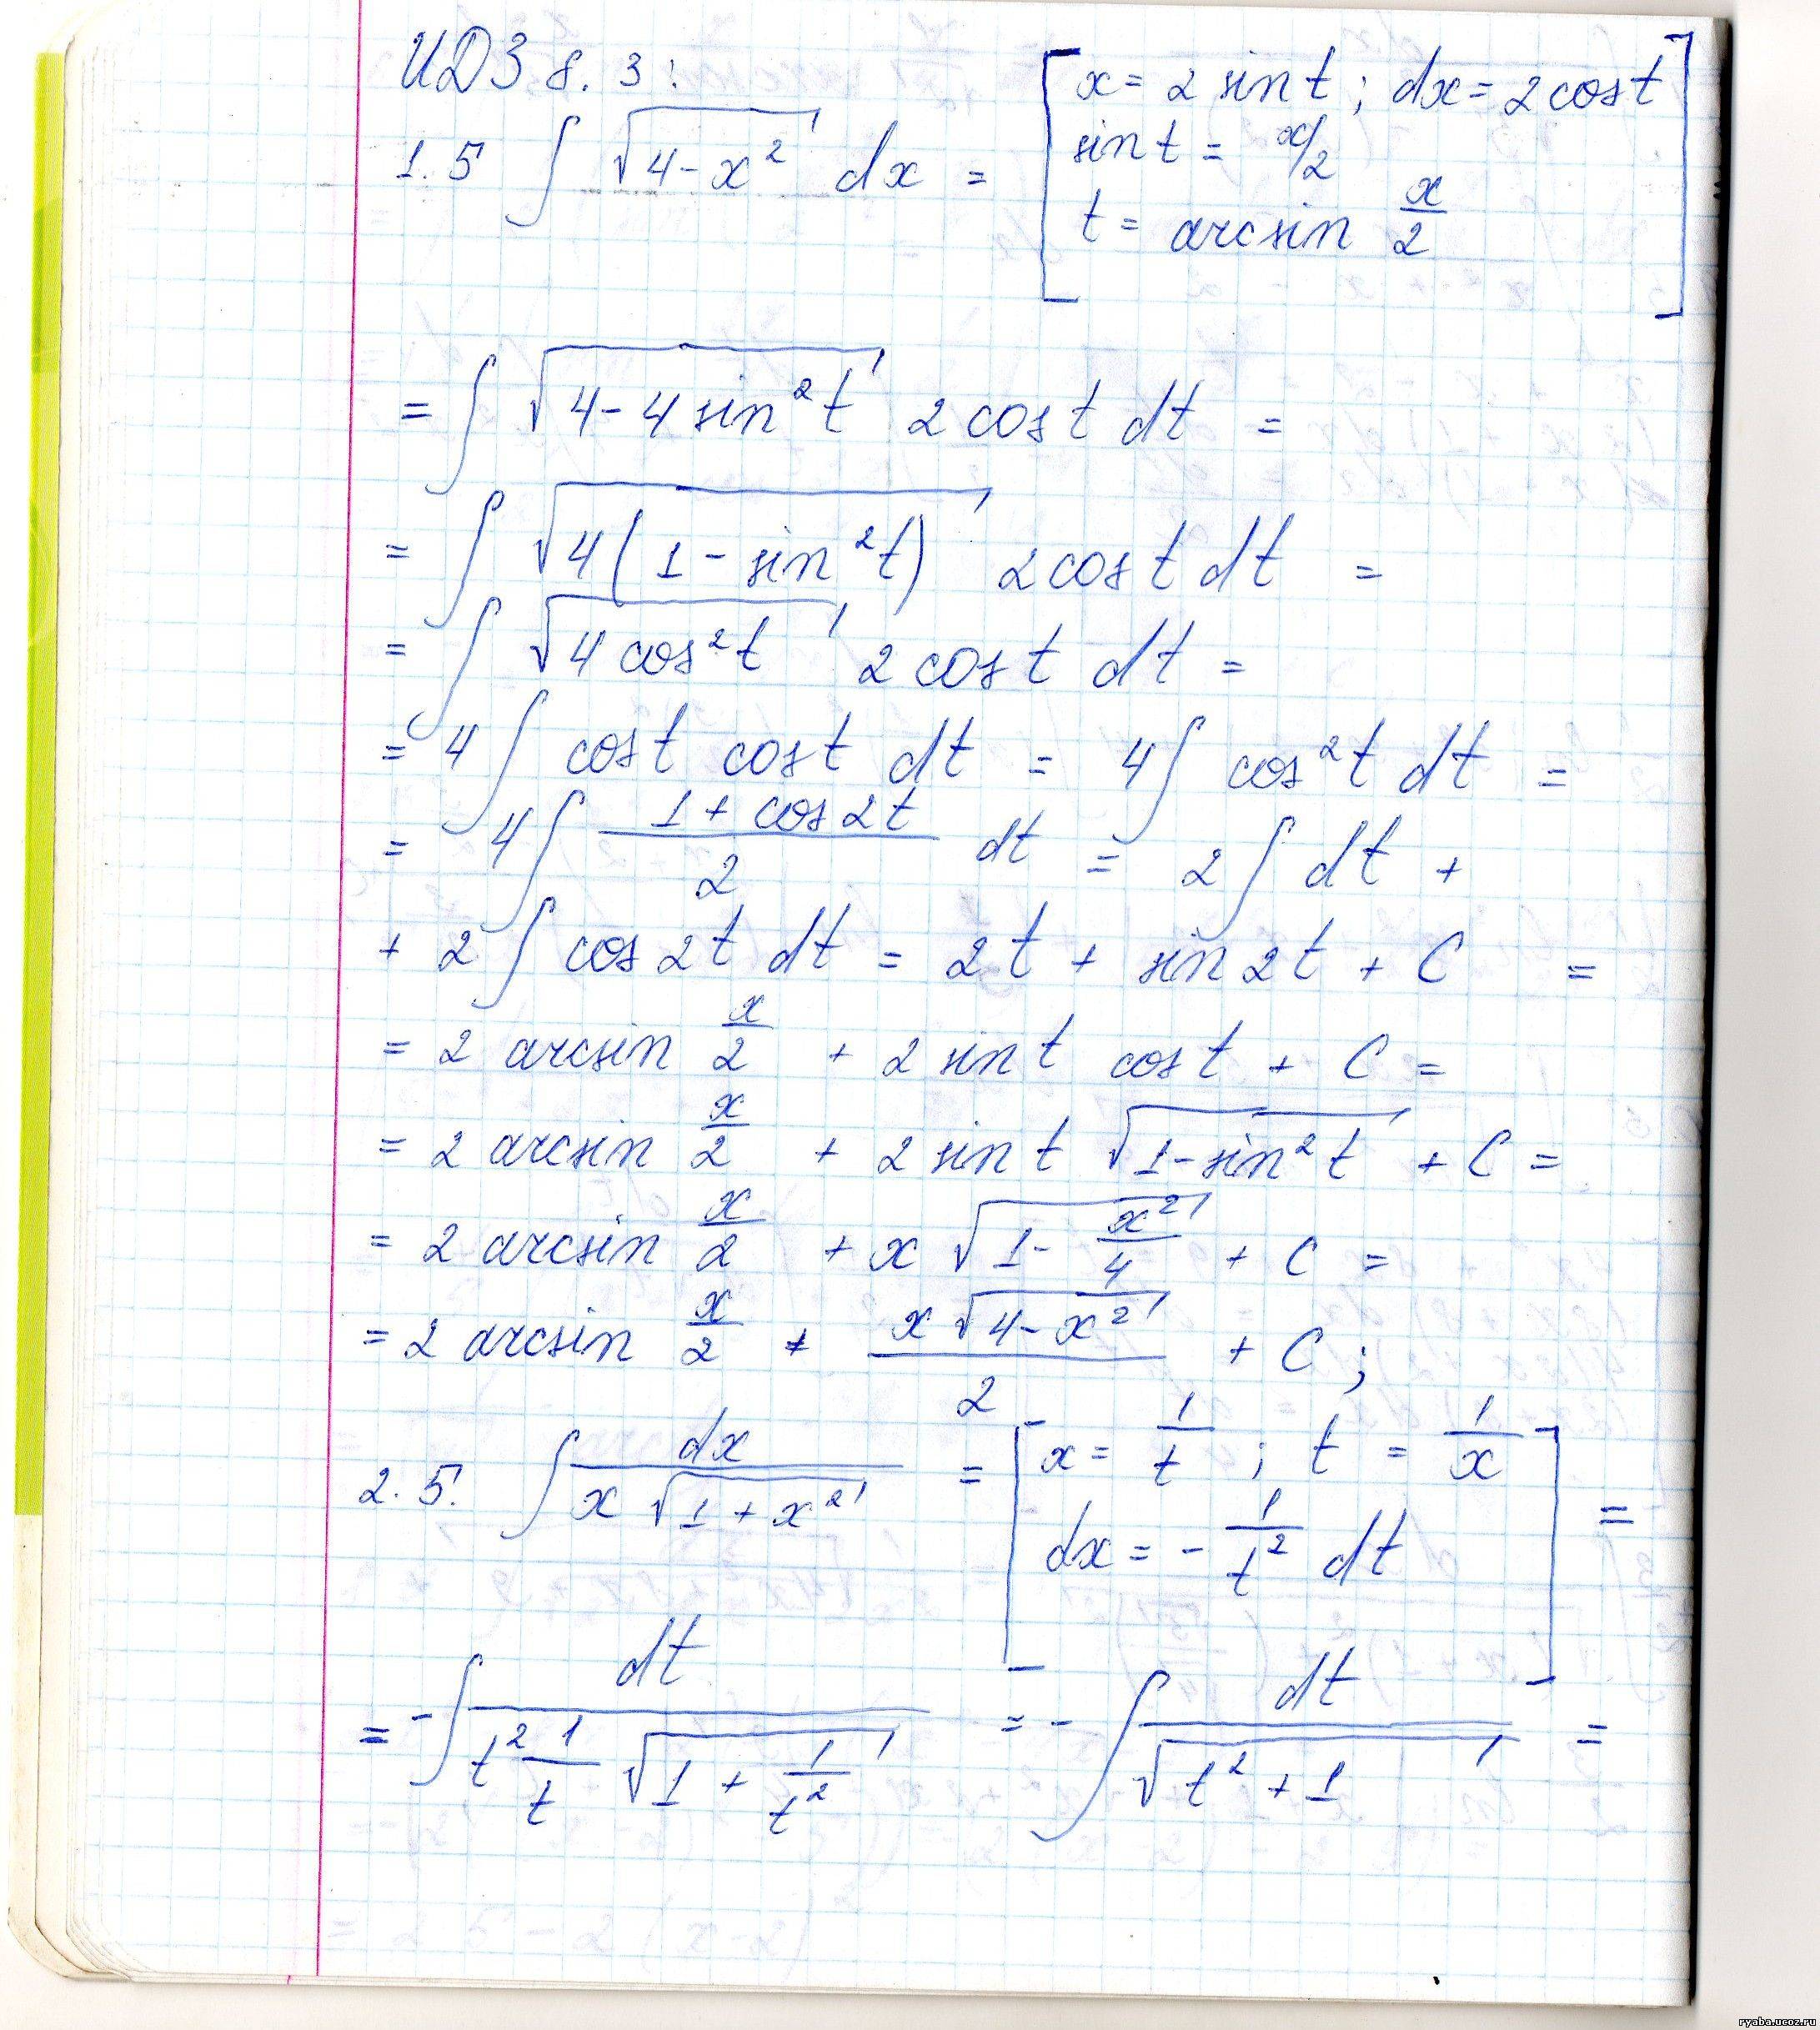 ИДЗ 8.3:
1.5 ∫ √(4-x²) dx = [x = 2 sin t ; dx = 2 cos t
sin t = x/2
t = arcsin x/2]
= ∫ √(4-4 sin²t) 2 cos t dt =
= ∫ √(4(1-sin²t)) 2 cos t dt =
= ∫ √(4 cos²t) 2 cos t dt =
= 4 ∫ cos t cos t dt = 4 ∫ cos²t dt =
= 4 ∫ (1 + cos 2t)/2 dt = 2 ∫ dt +
+ 2 ∫ cos 2t dt = 2t + sin 2t + C =
= 2 arcsin x/2 + 2 sin t cos t + C =
= 2 arcsin x/2 + 2 sin t √(1-sin²t) + C =
= 2 arcsin x/2 + x √(1 - x²/4) + C =
= 2 arcsin x/2 + (x √(4-x²))/2 + C ;
2.5. ∫ dx/(x √(1+x²)) = [x = 1/t ; t = 1/x
dx = - 1/t² dt] =
= - ∫ dt/(t² 1/t √(1 + 1/t²)) = - ∫ dt/√(t² + 1) =
ryaba.ucoz.ru